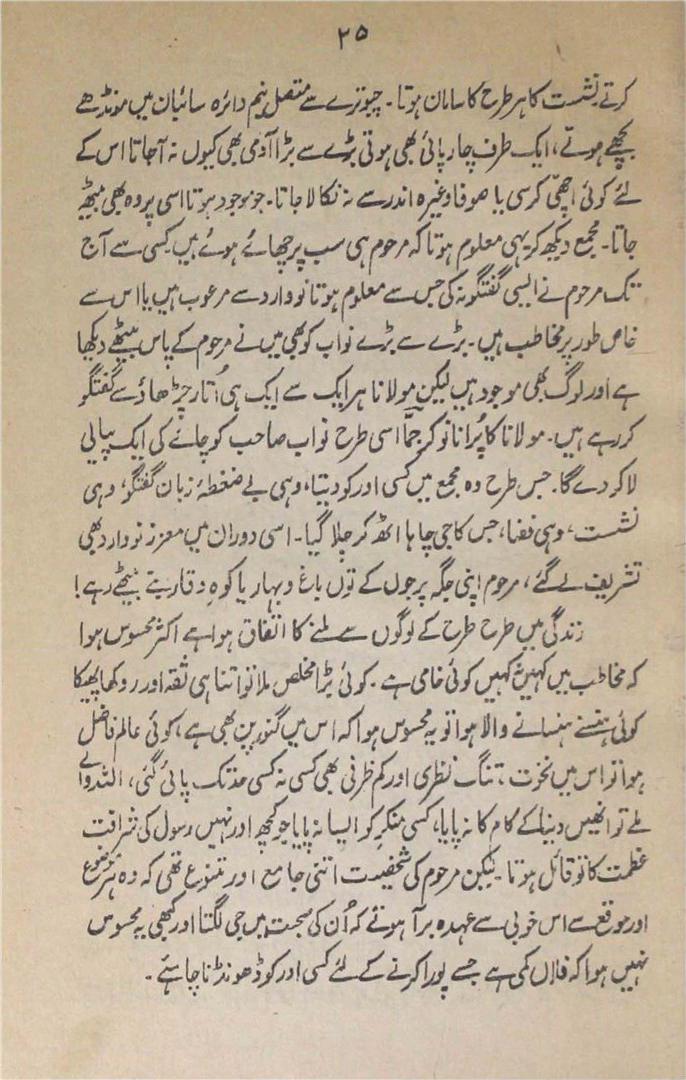 ۲۵
کرتے نشست کا ہر طرح کا سامان ہوتا۔ چبوترے سے متصل نیم دائرہ سائبان میں مونڈھے
بچھے ہوتے، ایک طرف چارپائی بھی ہوتی بڑے سے بڑا آدمی بھی کیوں نہ آجاتا اس کے
لئے کوئی اچھی کرسی یا صوفا وغیرہ اندر سے نہ نکالا جاتا۔ جو موجود ہوتا اسی پر وہ بھی بیٹھ
جاتا۔ مجمع دیکھ کر یہی معلوم ہوتا کہ مرحوم ہی سب پر چھائے ہوئے ہیں کسی سے آج
تک مرحوم نے ایسی گفتگو نہ کی جس سے معلوم ہوتا نووارد سے مرعوب ہیں یا اس سے
خاص طور پر مخاطب ہیں۔ بڑے سے بڑے نواب کو بھی میں نے مرحوم کے پاس بیٹھے دیکھا
ہے اور لوگ بھی موجود ہیں لیکن مولانا ہر ایک سے ایک ہی اُتار چڑھاؤ سے گفتگو
کر رہے ہیں۔ مولانا کا پُرانا نوکر جمّا اسی طرح نواب صاحب کو چائے کی ایک پیالی
لاکر دے گا۔ جس طرح وہ مجمع میں کسی اور کو دیتا، وہی بے ضغطۂ زبان گفتگو، وہی
نشست، وہی فضا، جس کا جی چاہا اٹھ کر چلا گیا۔ اسی دوران میں معزز نووارد بھی
تشریف لے گئے، مرحوم اپنی جگہ پر جوں کے توں باغ و بہار یا کوہِ وقار بنے بیٹھے رہے!
زندگی میں طرح طرح کے لوگوں سے ملنے کا اتفاق ہوا ہے اکثر محسوس ہوا
کہ مخاطب میں کہیں نہ کہیں کوئی خامی ہے۔ کوئی بڑا مخلص ملا تو اتنا ہی ثقہ اور روکھا پھیکا
کوئی ہنسنے ہنسانے والا ہوا تو یہ محسوس ہوا کہ اس میں گنوارپن بھی ہے، کوئی عالم فاضل
ہوا تو اس میں نخوت، تنگ نظری اور کم ظرفی بھی کسی نہ کسی حد تک پائی گئی، اللہ والے
ملے تو انھیں دنیا کے کام کا نہ پایا، کسی منکر کو ایسا نہ پایا جو کچھ اور نہیں رسول کی شرافت
عظمت کا تو قائل ہوتا۔ لیکن مرحوم کی شخصیت اتنی جامع اور متنوع تھی کہ وہ ہر موضوع
اور موقع سے اس خوبی سے عہدہ برآ ہوتے کہ اُن کی صحبت میں جی لگتا اور کبھی یہ محسوس
نہیں ہوا کہ فلاں کمی ہے جسے پورا کرنے کے لئے کسی اور کو ڈھونڈنا چاہئے۔